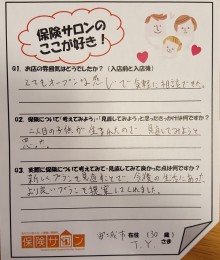 保険サロンの
ここが好き!
Q1. お店の雰囲気はどうでしたか?(入店前と入店後)
とてもオープンな感じで気軽に相談できた。
Q2. 保険について「考えてみよう」・「見直してみよう」と思ったきっかけは何ですか?
二人目の子供が生まれたので、見直してみようと
思った。
Q3. 実際に保険について考えてみて・見直してみて良かった点は何ですか?
新しいプランを見直すことで、今後の生活にあった
より良いプランを提案してくれました。
保険サロン
市在住(30 歳)
T.Y さま